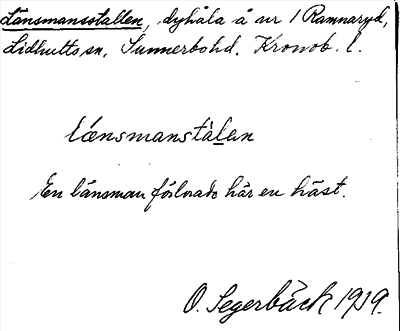 Länsmansstallen, dyhåla å nr 1 Ramnaryd,
Lidhults sn. Sunnerbo hd. Kronob. l.
länsmanstalen
En länsman förlorade här en häst.
O. Segerbäck 1919.